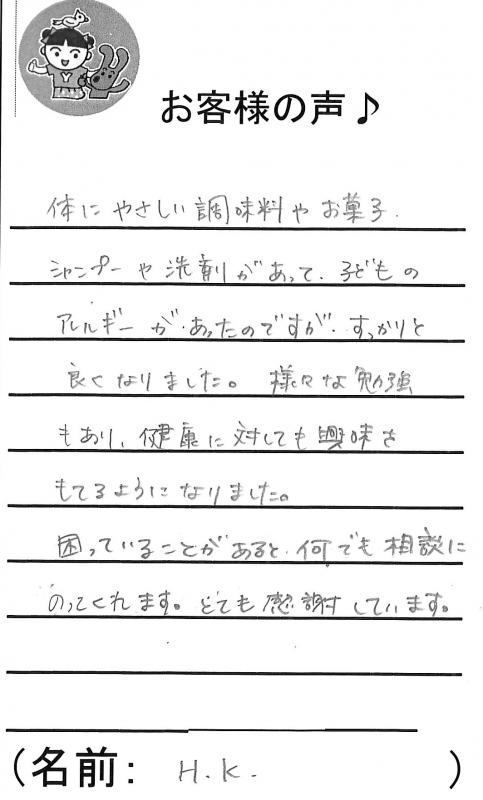 お客様の声♪
体にやさしい調味料やお菓子.
シャンプーや洗剤があって、子どもの
アレルギーが、あったのですが、すっかりと
良くなりました。様々な勉強
もあり、健康に対しても興味を
もてるようになりました。
困っていることがあると、何でも相談に
のってくれます。とても感謝しています。
(名前: H.K. )